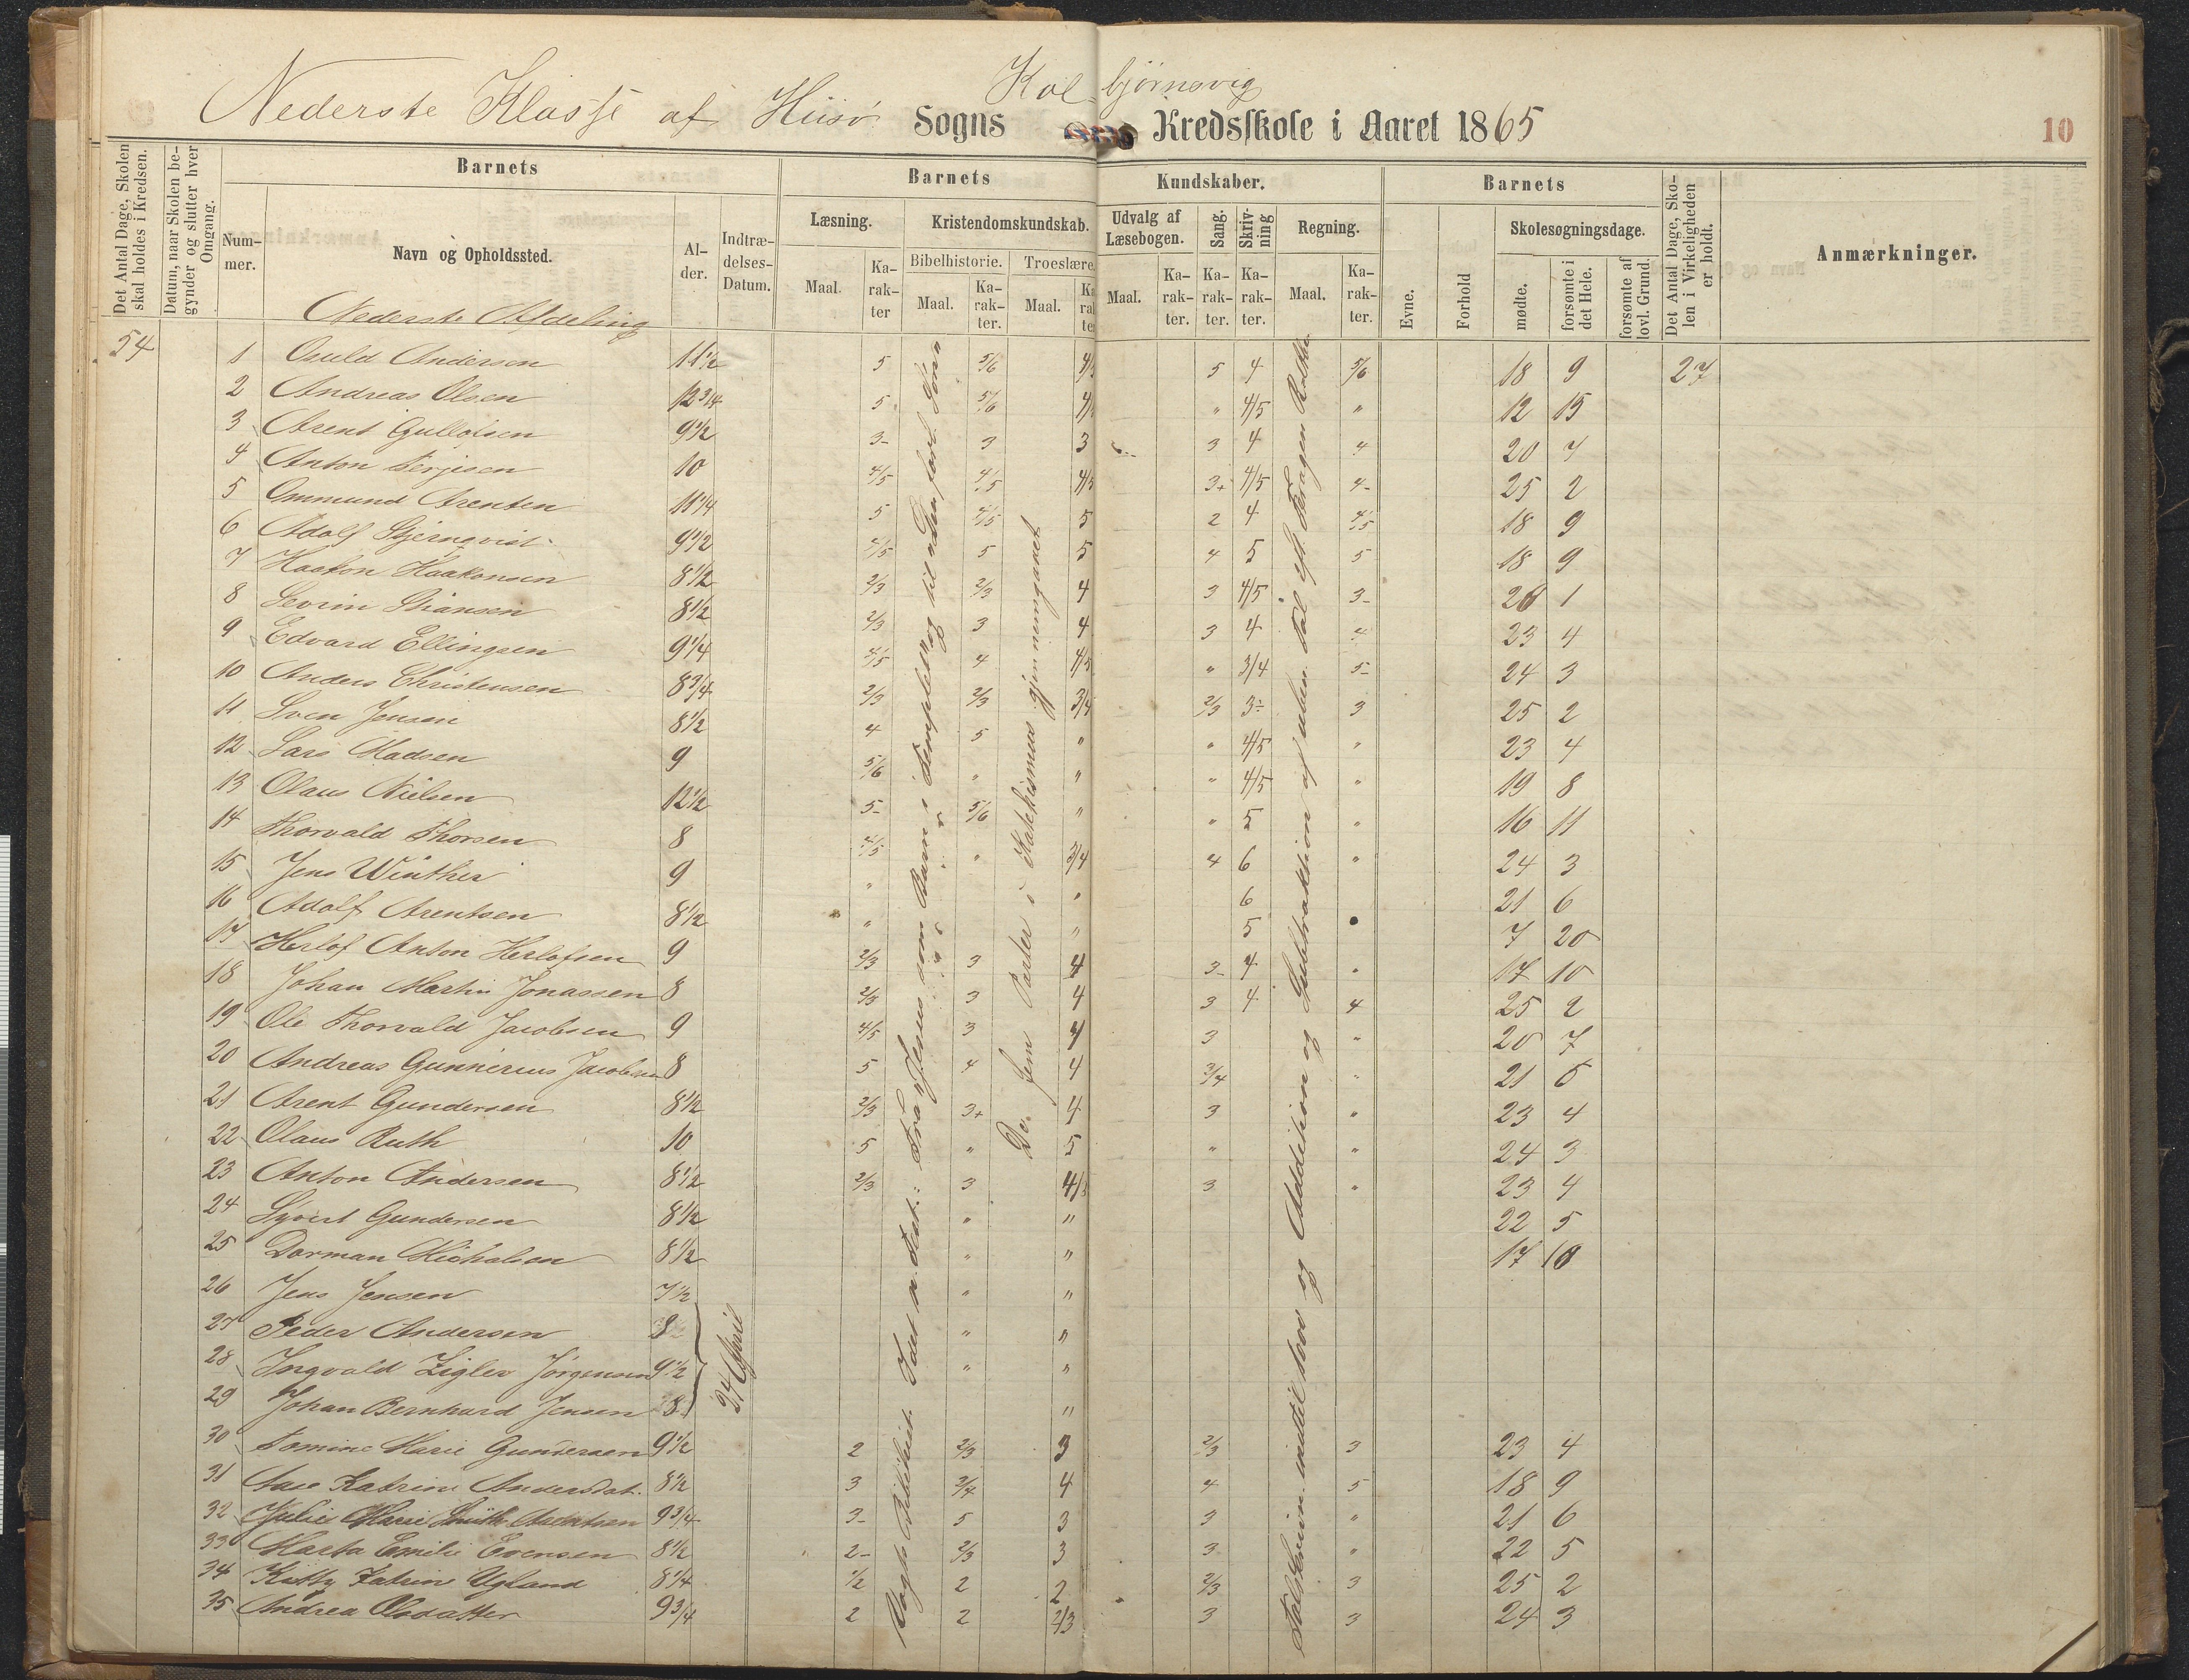 Kol bjørnsvig
Nederste Klasse af Hiisø Sogns Kredsskole i Aaret 1865
10
Det Antal Dage, Skolen skal holdes i Kredsen.
Datum, naar Skolen begynder og slutter hver Omgang.
Barnets
Barnets Kundskaber.
Barnets
Det Antal Dage, Skolen i Virkeligheden er holdt.
Anmærkninger.
Nummer.
Navn og Opholdssted.
Alder.
Indtrædelses-Datum.
Læsning.
Kristendomskundskab.
Udvalg af Læsebogen.
Sang.
Skrivning
Regning.
Evne.
Forhold
Skolesøgningsdage.
Maal.
Karakter
Bibelhistorie.
Troeslære.
Maal.
Karakter.
Maal.
Karakter
Maal.
Karakter.
Karakter.
Karakter.
Maal.
Karakter.
mødte.
forsømte i det Hele.
forsømte af lovl. Grund.
Nederste Afdeling
54 1 Onuld Andersen 11½ 5 5/6 5 4 5/6 18 9 27
2 Andreas Olsen 12¾ 5 5/6 " 4/5 " 12 15
3 Arent Gullofsen 9½ 3- 3 3 3 4 4 20 7
4 Anton Terjesen 10 4/5 4/5 4/5 3+ 4/5 4- 25 2
5 Ommund Arentsen 11¼ 5 4/5 5 2 4 4/5 18 9
6 Adolf Stjernqvist 9½ 4/5 5 5 4 5 5 18 9
7 Haakon Haakonsen 8½ 2/3 2/3 4 3 4/5 3- 26 1
8 Severin 8½ 2/3 3 4 3 4 4 23 4
9 Edvard Ellingsen 9¼ 4/5 4 4/5 " 3/4 5- 24 3
10 Anders Christensen 8¾ 2/3 2/3 3/4 2/3 3- 3 25 2
11 Sven Jensen 8½ 4 5 " " 4/5 " 23 4
12 Lars Madsen 9 5/6 " " " 4/5 " 19 8
13 Olaus Nielsen 12½ 5- 5/6 " " 5 " 16 11
14 Thorvald Thorsen 8 4/5 " 3/4 4 6 " 24 3
15 Jens Winther 9 " " 6 21 6
16 Adolf Arentsen 8½ " " 5 7 20
17 Herlof Anton Herlofsen 9 2/3 3 4 3- 4 " 17 10
18 Johan Martin Jonassen 8 2/3 3 4 3 4 4 25 2
19 Ole Thorvald Jacobsen 9 4/5 3 4 3 " 20 7
20 Andreas Gunnerius Jacobsen 8 5 4 4 3/4 " 21 6
21 Arent Gundersen 8½ 2/3 3+ 4 3 " 23 4
22 Olaus Ruth 10 5 " 5 " " 24 3
23 Anton Andersen 8½ 2/3 3 4/5 3 " 23 4
24 Syvert Gundersen 8½ " " 22 5
25 Dorman Michalsen 8½ " " 17 10
26 Jens Jensen 7½ " "
27 Peder Andersen 8 " "
28 Ingvald Zigler Jørgensen 9½ " "
29 Johan Bernhard Jensen 8 "
24 April
30 Tomine Marie Gundersen 9½ 2 2/3 3 2/3 3 23 4
31 Aase Katrine Andersdat. 8½ 3 3/4 4 4 5 18 9
32 Julie Marie Smith 9¾ 3- 5 3 3 " 21 6
33 Marta Emilie Evensen 8½ 2- 2/3 3 3 " 22 5
34 Kitty Katrine Ugland 8¼ ½ 2 2 2/3 3 25 2
35 Andrea Olsdatter 9¾ 2 2 2/3 3 3 24 3
Vogts Bibelhist. Fra "Jesus som Barn i Templet" og til
De fem Parter i Katekismus gjennemgaaet
og Addition og Subtraktion af